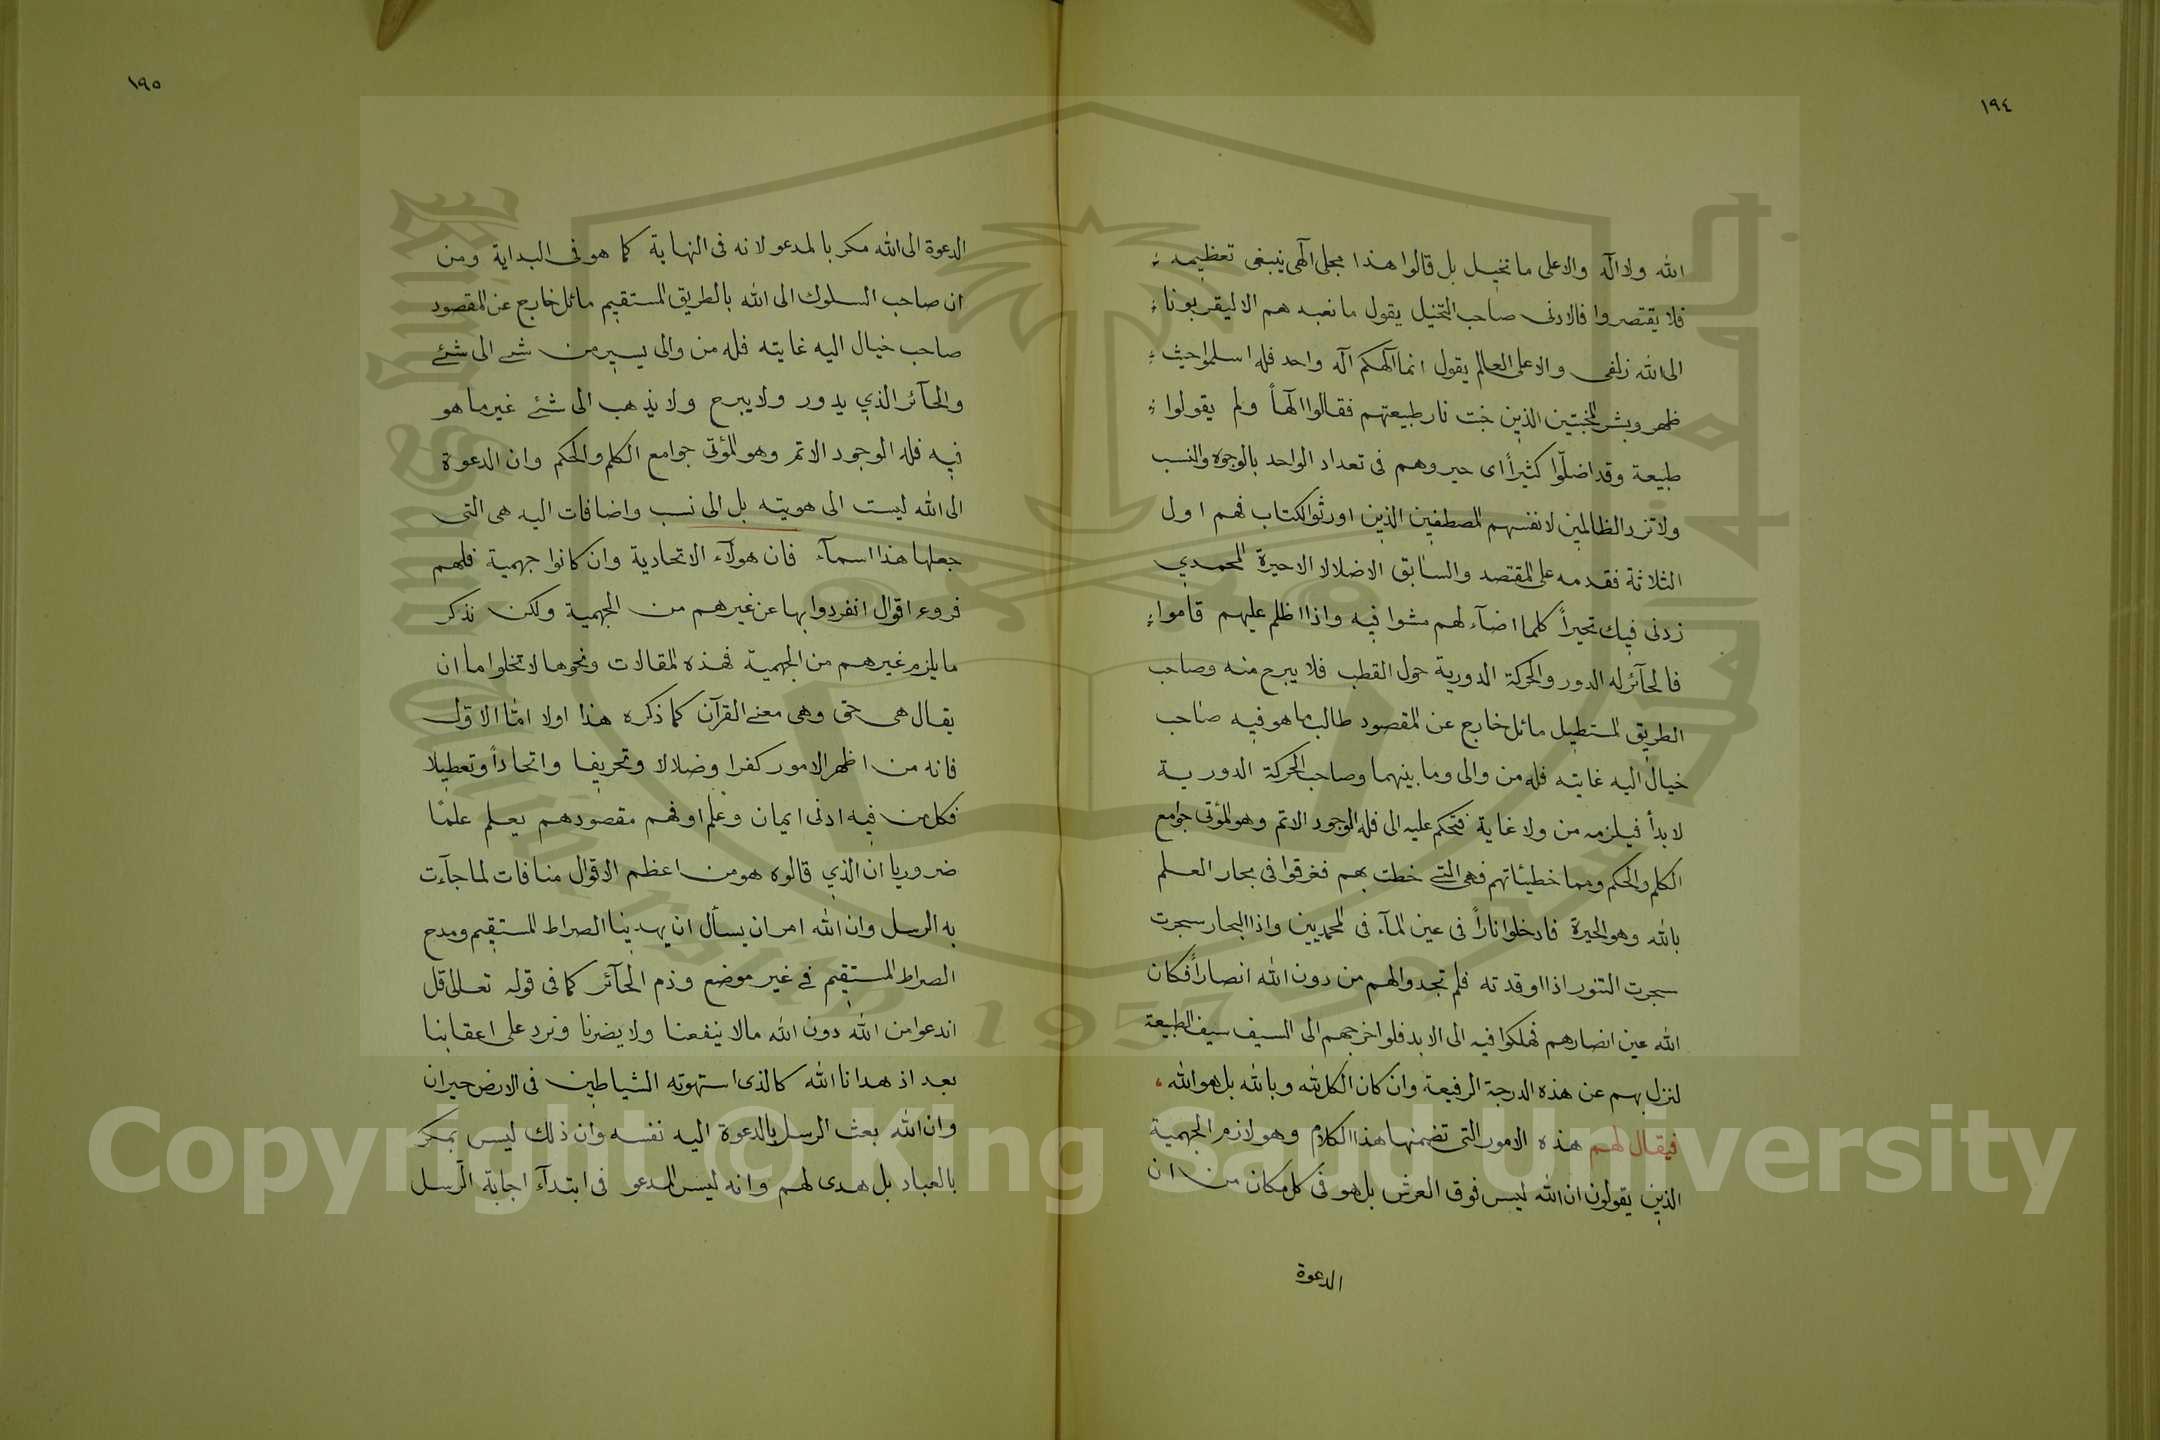 ١٩٤
الله ولا اله والاعلى ما تخيل بل قالوا هذا مجلى آلهي ينبغى تعظيمه
فلا يقتصروا فالادنى صاحب التخيل يقول ما نعبد هم الا ليقربونا
الى الله زلفى والاعلى العالم يقول انما آلهكم آله واحد فله اسلموا حيث
ظهر وبشر المخبتين الذين خبت نار طبيعتهم فقالوا آلهاً ولم يقولوا
طبيعة وقد اضلّوا كثيراً اى حيروهم فى تعداد الواحد بالوجوه والنسب
ولا تزد الظالمين لانفسهم المصطفين الذين اورثوا الكتاب فهم اول
الثلاثة فقدمه على المقتصد والسابق الاضلالا الاحيرة المحمدي
زدنى فيك تحيراً كلما اضآء لهم مشوا فيه واذا اظلم عليهم قاموا
فالحآئر له الدور والحركة الدورية حول القطب فلا يبرح منه وصاحب
الطريق المستطيل مائل خارج عن المقصود طالب ما هو فيه صاحب
خيال اليه غايته فله من والى وما بينهما وصاحب الحركة الدورية
لا بدأ فيلزمه من ولا غاية فتحكم عليه الى فله الوجود الاتم وهو المؤتى جوامع
الكلم والحكم ومما خطيئاتهم فهى التى خطت بهم فغرقوا فى بحار العلم
بالله وهو الحيرة فادخلوا ناراً فى عين المآء فى المحمديين واذا البحار سجرت
سجرت التنور اذا اوقدته فلم تجدوا لهم من دون الله انصاراً فكان
الله عين انصارهم فهلكوا فيه الى الابد فلو اخرجهم الى السيف سيف الطبيعة
لنزل بهم عن هذه الدرجة الرفيعة وان كان الكل لله وبالله بل هو الله
فيقال لهم هذه الامور التى تضمنها هذا الكلام وهو لازم الجهمية
الذين يقولون ان الله ليس فوق العرش بل هو فى كل مكان من ان
الدعوة
١٩٥
الدعوة الى الله مكر بالمدعو لانه فى النهاية كما هو فى البداية ومن
ان صاحب السلوك الى الله بالطريق المستقيم مائل خارج عن المقصود
صاحب خيال اليه غايته فله من والى يسير من شئ الى شئ
والحآئر الذي يدور ولا يبرح ولا يذهب الى شئ غير ما هو
فيه فله الوجود الاتم وهو المؤتى جوامع الكلم والحكم وان الدعوة
الى الله ليست الى هويته بل الى نسب واضافات اليه هى التى
جعلها هذا اسمآء فان هولآء الاتحادية وان كانوا جهمية فلهم
فروع اقوال انفردوا بها عن غيرهم من الجهمية ولكن نذكر
ما يلزم غيرهم من الجهمية فهذه المقالات ونحوها لا تخلوا اما ان
يقال هى حق وهى معنى القرآن كما ذكره هذا اولا امّا الاوّل
فانه من اظهر الامور كفرا وضلالا وتحريفا واتحاداً وتعطيلا
فكل من فيه ادنى ايمان وعلم او فهم مقصودهم يعلم علمًا
ضروريا ان الذي قالوه هو من اعظم الاقوال منافات لما جآءت
به الرسل وان الله امر ان يسأل ان يهدينا الصراط المستقيم ومدح
الصراط المستقيم فى غير موضع وذم الحآئر كما فى قوله تعالى قل
اندعوا من الله دون الله ما لا ينفعنا ولا يضرنا ونرد على اعقابنا
بعد اذ هدانا الله كالذى استهوته الشياطين فى الارض حيران
وان الله بعث الرسل بالدعوة اليه نفسه وان ذلك ليس بمكر
بالعباد بل هدى لهم وانه ليس المدعو فى ابتدآء اجابة الرّسل
Copyright © King Saud University
1957